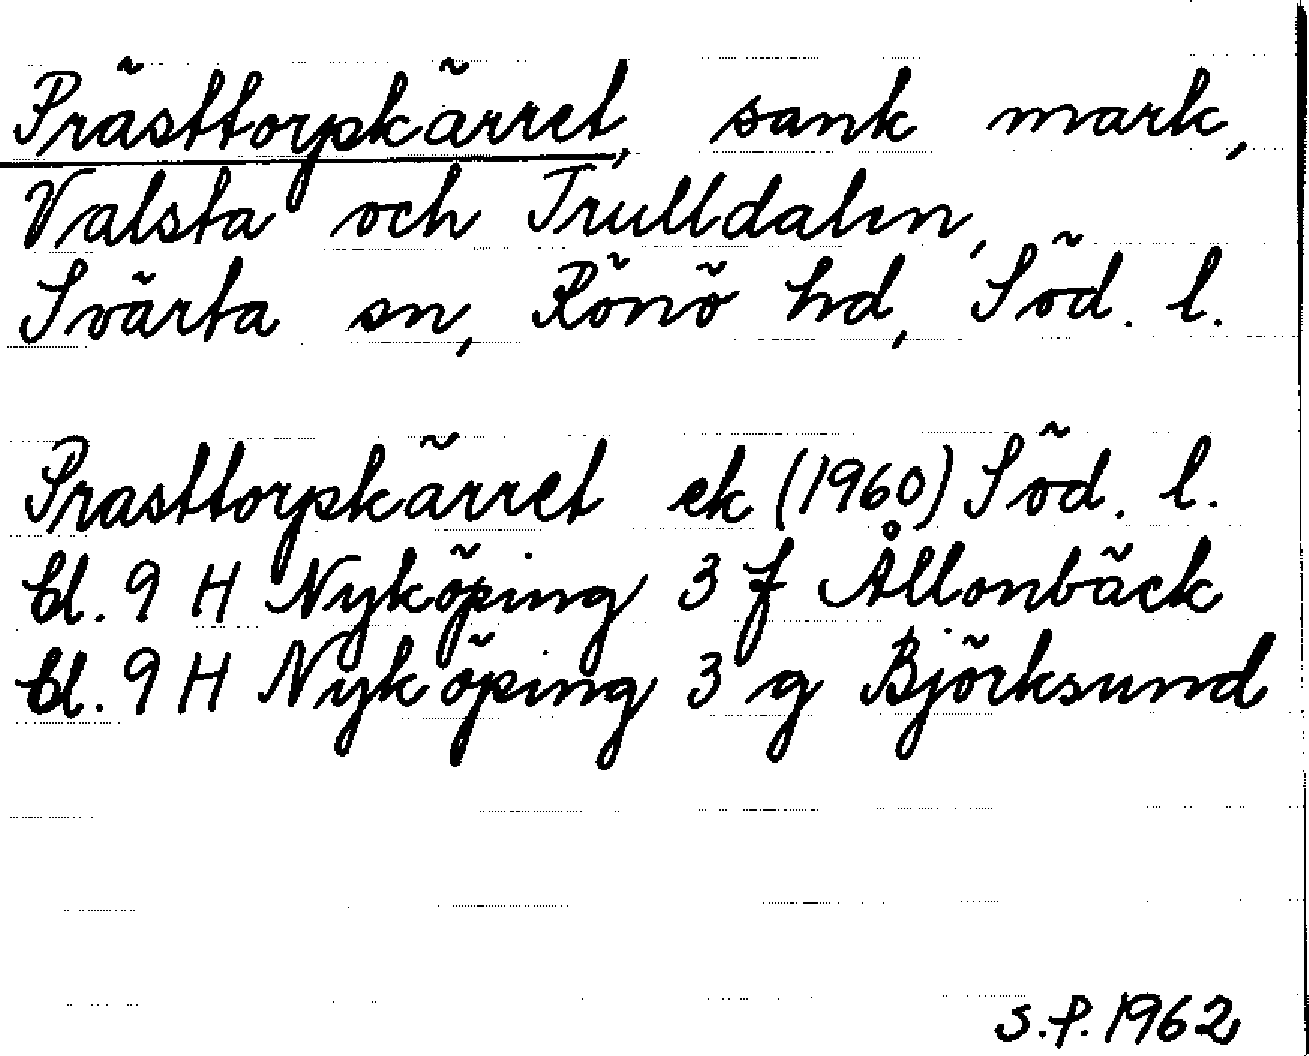 Prästtorpkärret, sank mark,
Valsta och Trulldalen,
Svärta sn, Rönö hd, Söd. l.
Prasttorpkärret ek (1960) Söd. l.
bl. 9 H Nyköping 3 f Ållonbäck
bl. 9 H Nyköping 3 g Björksund
S.P. 1962